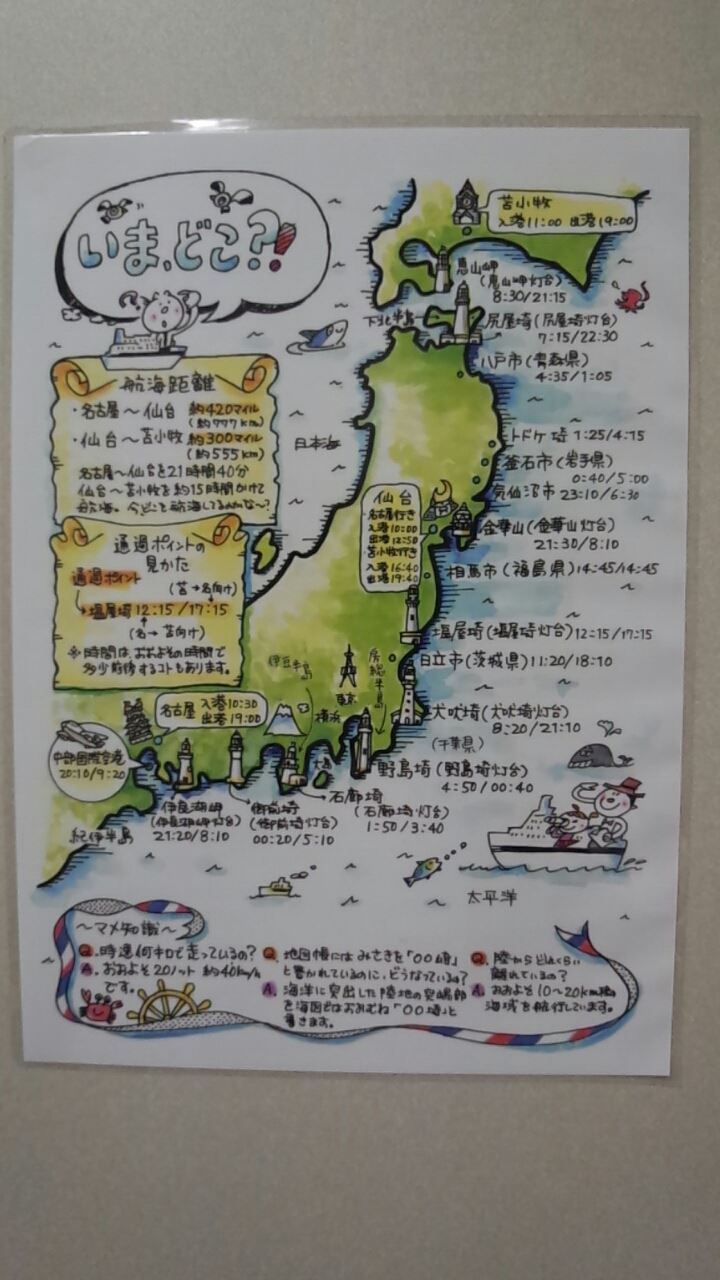 いま、どこ?!
航海距離
・名古屋～仙台 約420マイル
(約777km)
・仙台～苫小牧 約300マイル
(約555km)
名古屋～仙台を21時間40分
仙台～苫小牧を約15時間かけて
通過ポイントの
見かた
通過ポイント
(苫→名向け)
塩屋埼 12:15/17:15
(名→苫向け)
※時間は、おおよその時間で
多少前後するコトもあります。
苫小牧
入港11:00 出港19:00
恵山岬
(恵山岬灯台)
8:30/21:15
下北半島
尻屋埼(尻屋埼灯台)
7:15/22:30
八戸市(青森県)
4:35/1:05
日本海
トドケ埼 1:25/4:15
釜石市(岩手県)
0:40/5:00
気仙沼市 23:10/6:30
仙台
・名古屋行き
入港10:00
出港12:50
・苫小牧行き
入港16:40
出港19:40
金華山(金華山灯台)
21:30/8:10
相馬市(福島県)14:45/14:45
塩屋埼(塩屋埼灯台)12:15/17:15
日立市(茨城県)11:20/18:10
犬吠埼(犬吠埼灯台)
8:20/21:10
(千葉県)
伊豆半島
房総半島
東京
横浜
大島
名古屋 入港10:30
出港19:00
中部国際空港
20:10/9:20
野島埼(野島埼灯台)
4:50/00:40
石廊埼
(石廊埼灯台)
1:50/3:40
御前埼
(御前埼灯台)
00:20/5:10
伊良湖岬
(伊良湖岬灯台)
21:20/8:10
紀伊半島
太平洋
～マメ知識～
Q.時速何キロで走っているの?
A.おおよそ20ノット 約40km/h
です。
Q.地図帳にはみさきを「〇〇崎」
と書かれているのに、どうなっているの?
A.海洋に突出した陸地の突端部
を海図ではおおむね「〇〇埼」と
書きます。
Q.陸からどれくらい
離れているの?
A.おおよそ10～20km
海域を航行しています。